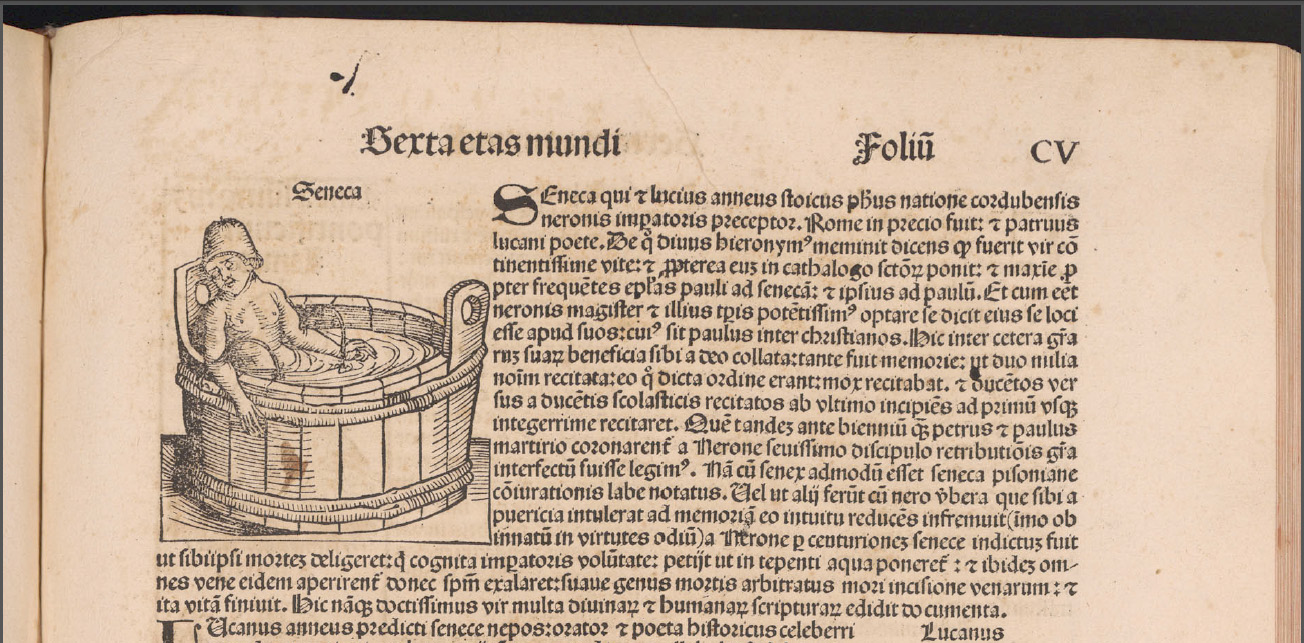 Sexta etas mundi Foliū CV
Seneca
SEneca qui ⁊ lucius anneus stoicus ph̄us natione cordubensis
neronis imꝑatoris preceptor. Rome in precio fuit: ⁊ patruus
lucani poete. De q̄ diuus hieronymꝰ meminit dicens ꝙ fuerit vir cō
tinentissime vite: ⁊ ꝓpterea euꝫ in cathalogo sctōꝝ ponit: ⁊ maxīe ꝓ
pter frequētes ep̄las pauli ad senecā: ⁊ ipsius ad paulū. Et cum eēt
neronis magister ⁊ illius tp̄is potētissimꝰ optare se dicit eius se loci
esse apud suos: cuiꝰ sit paulus inter christianos. Hic inter cetera gr̄a
ruꝫ suaꝝ beneficia sibi a deo collata: tante fuit memorie: ut duo milia
noīm recitata: eo q̄ dicta ordine erant: mox recitabat. ⁊ ducētos ver
sus a ducētis scolasticis recitatos ab vltimo incipiēs ad primū vsqꝫ
integerrime recitaret. Quē tandeꝫ ante bienniū qꝫ petrus ⁊ paulus
martirio coronarent᷑ a Nerone seuissimo discipulo retributiōis gr̄a
interfectū fuisse legimꝰ. Nā cū senex admodū esset seneca pisoniane
cōiurationis labe notatus. Uel ut alij ferūt cū nero v̄bera que sibi a
puericia intulerat ad memoriā eo intuitu reducēs infremuit (īmo ob
innatū in virtutes odiū) a Nerone ꝑ centurioneꝫ senece indictuꝫ fuit
ut sibiipsi morteꝫ deligeret: q̄ cognita imꝑatoris volūtate: petijt ut in tepenti aqua poneret᷑: ⁊ ibideꝫ om-
nes vene eidem aperirent᷑ donec spm̄ exalaret: suaue genus mortis arbitratus mori incisione venarum: ⁊
ita vitā finiuit. Hic nāqꝫ doctissimus vir multa diuinaꝝ ⁊ humanaꝝ scripturaꝝ edidit documenta.
LUcanus anneus predicti senece nepos: orator ⁊ poeta historicus celeberri Lucanus